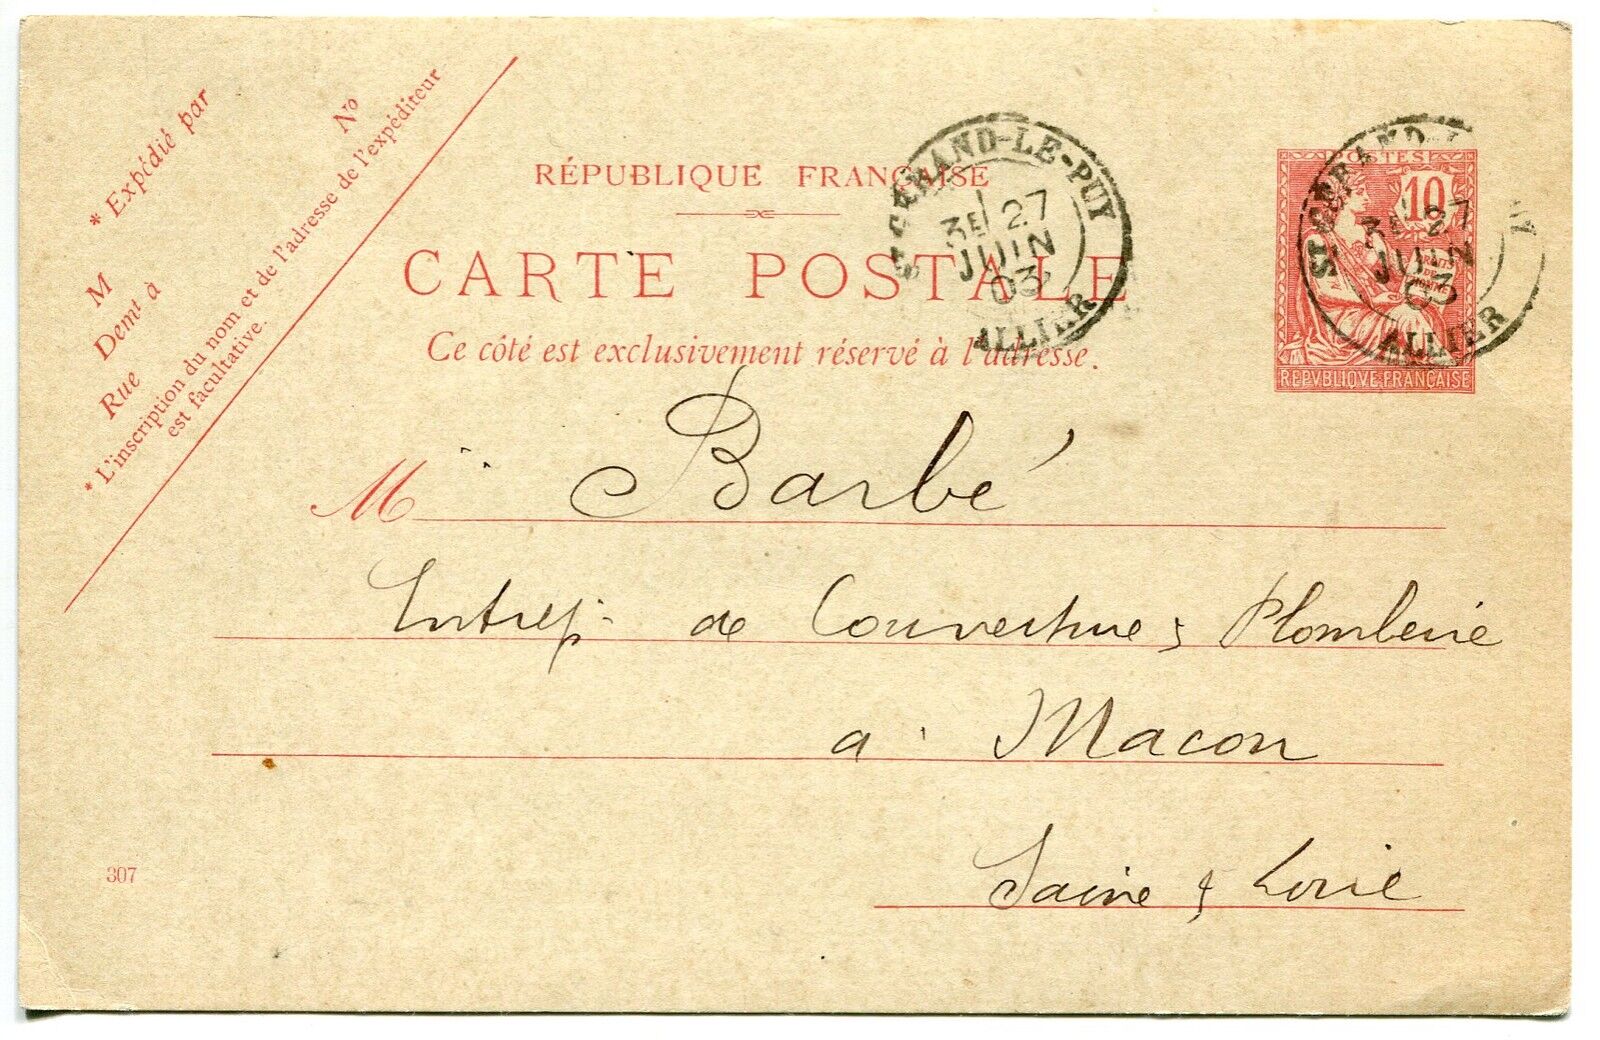 * Expédié par
M
Demt à
Rue
No
* L'inscription du nom et de l'adresse de l'expéditeur
est facultative.
RÉPUBLIQUE FRANÇAISE
CARTE POSTALE
Ce côté est exclusivement réservé à l'adresse.
ST GERAND-LE-PUY
3E 27
JUIN
03
ALLIER
POSTES
10
DROITS
DE
L'HOMME
REPVBLIQVE FRANÇAISE
ST GERAND-L
3E 27
JUIN
03
ALLIER
M Barbé
Entrep. de Couverture & Plomberie
a Macon
Saine & Loire
307